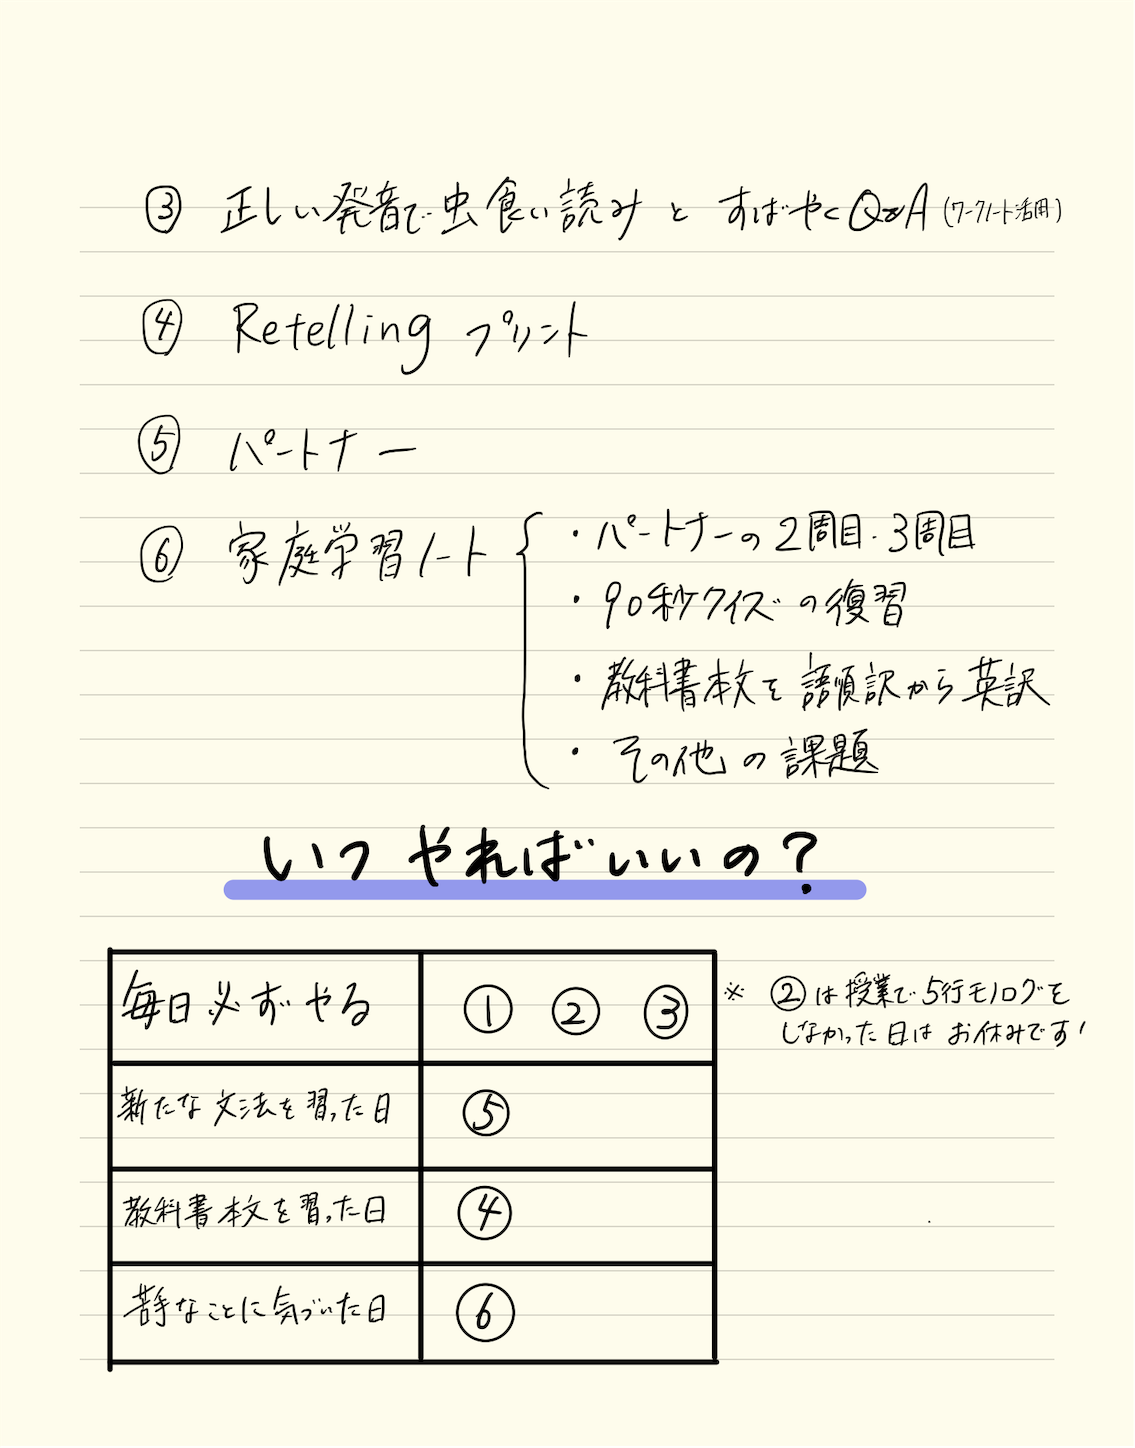 ③ 正しい発音で虫食い読みとすばやくQ&A(ワークノート活用)
④ Retelling プリント
⑤ パートナー
⑥ 家庭学習ノート
・パートナーの2周目・3周目
・90秒クイズの復習
・教科書本文を語順訳から英訳
・その他の課題
いつやればいいの?
毎日必ずやる ① ② ③
※ ②は授業で5行モノログを
しなかった日はお休みです!
新たな文法を習った日 ⑤
教科書本文を習った日 ④
苦手なことに気づいた日 ⑥